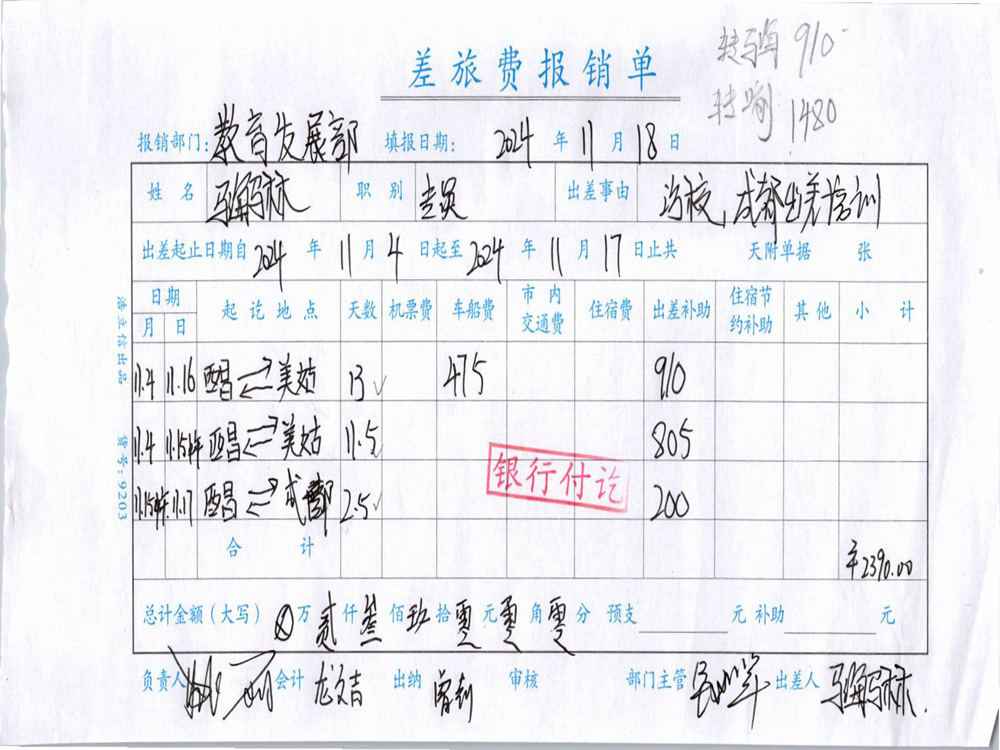 差旅费报销单
910
1480
报销部门: 教育发展部 填报日期: 2024 年 11 月 18 日
姓名 职别 专员 出差事由 成都出差培训
出差起止日期自 2024 年 11 月 4 日起至 2024 年 11 月 17 日止共 天附单据 张
日期 起讫地点 天数 机票费 车船费 市内交通费 住宿费 出差补助 住宿节约补助 其他 小计
月 日
11.4 11.16 西昌 美姑 13 475 910
11.4 11.15 西昌 美姑 11.5 805
11.15 11.17 西昌 成都 2.5 200
银行付讫
合计 ¥2390.00
总计金额(大写) 万 贰 仟 叁 佰 玖 拾 零 元 零 角 零 分 预支 元 补助 元
负责人 会计 龙文吉 出纳 审核 部门主管 出差人
浩立信出品 货号:9203